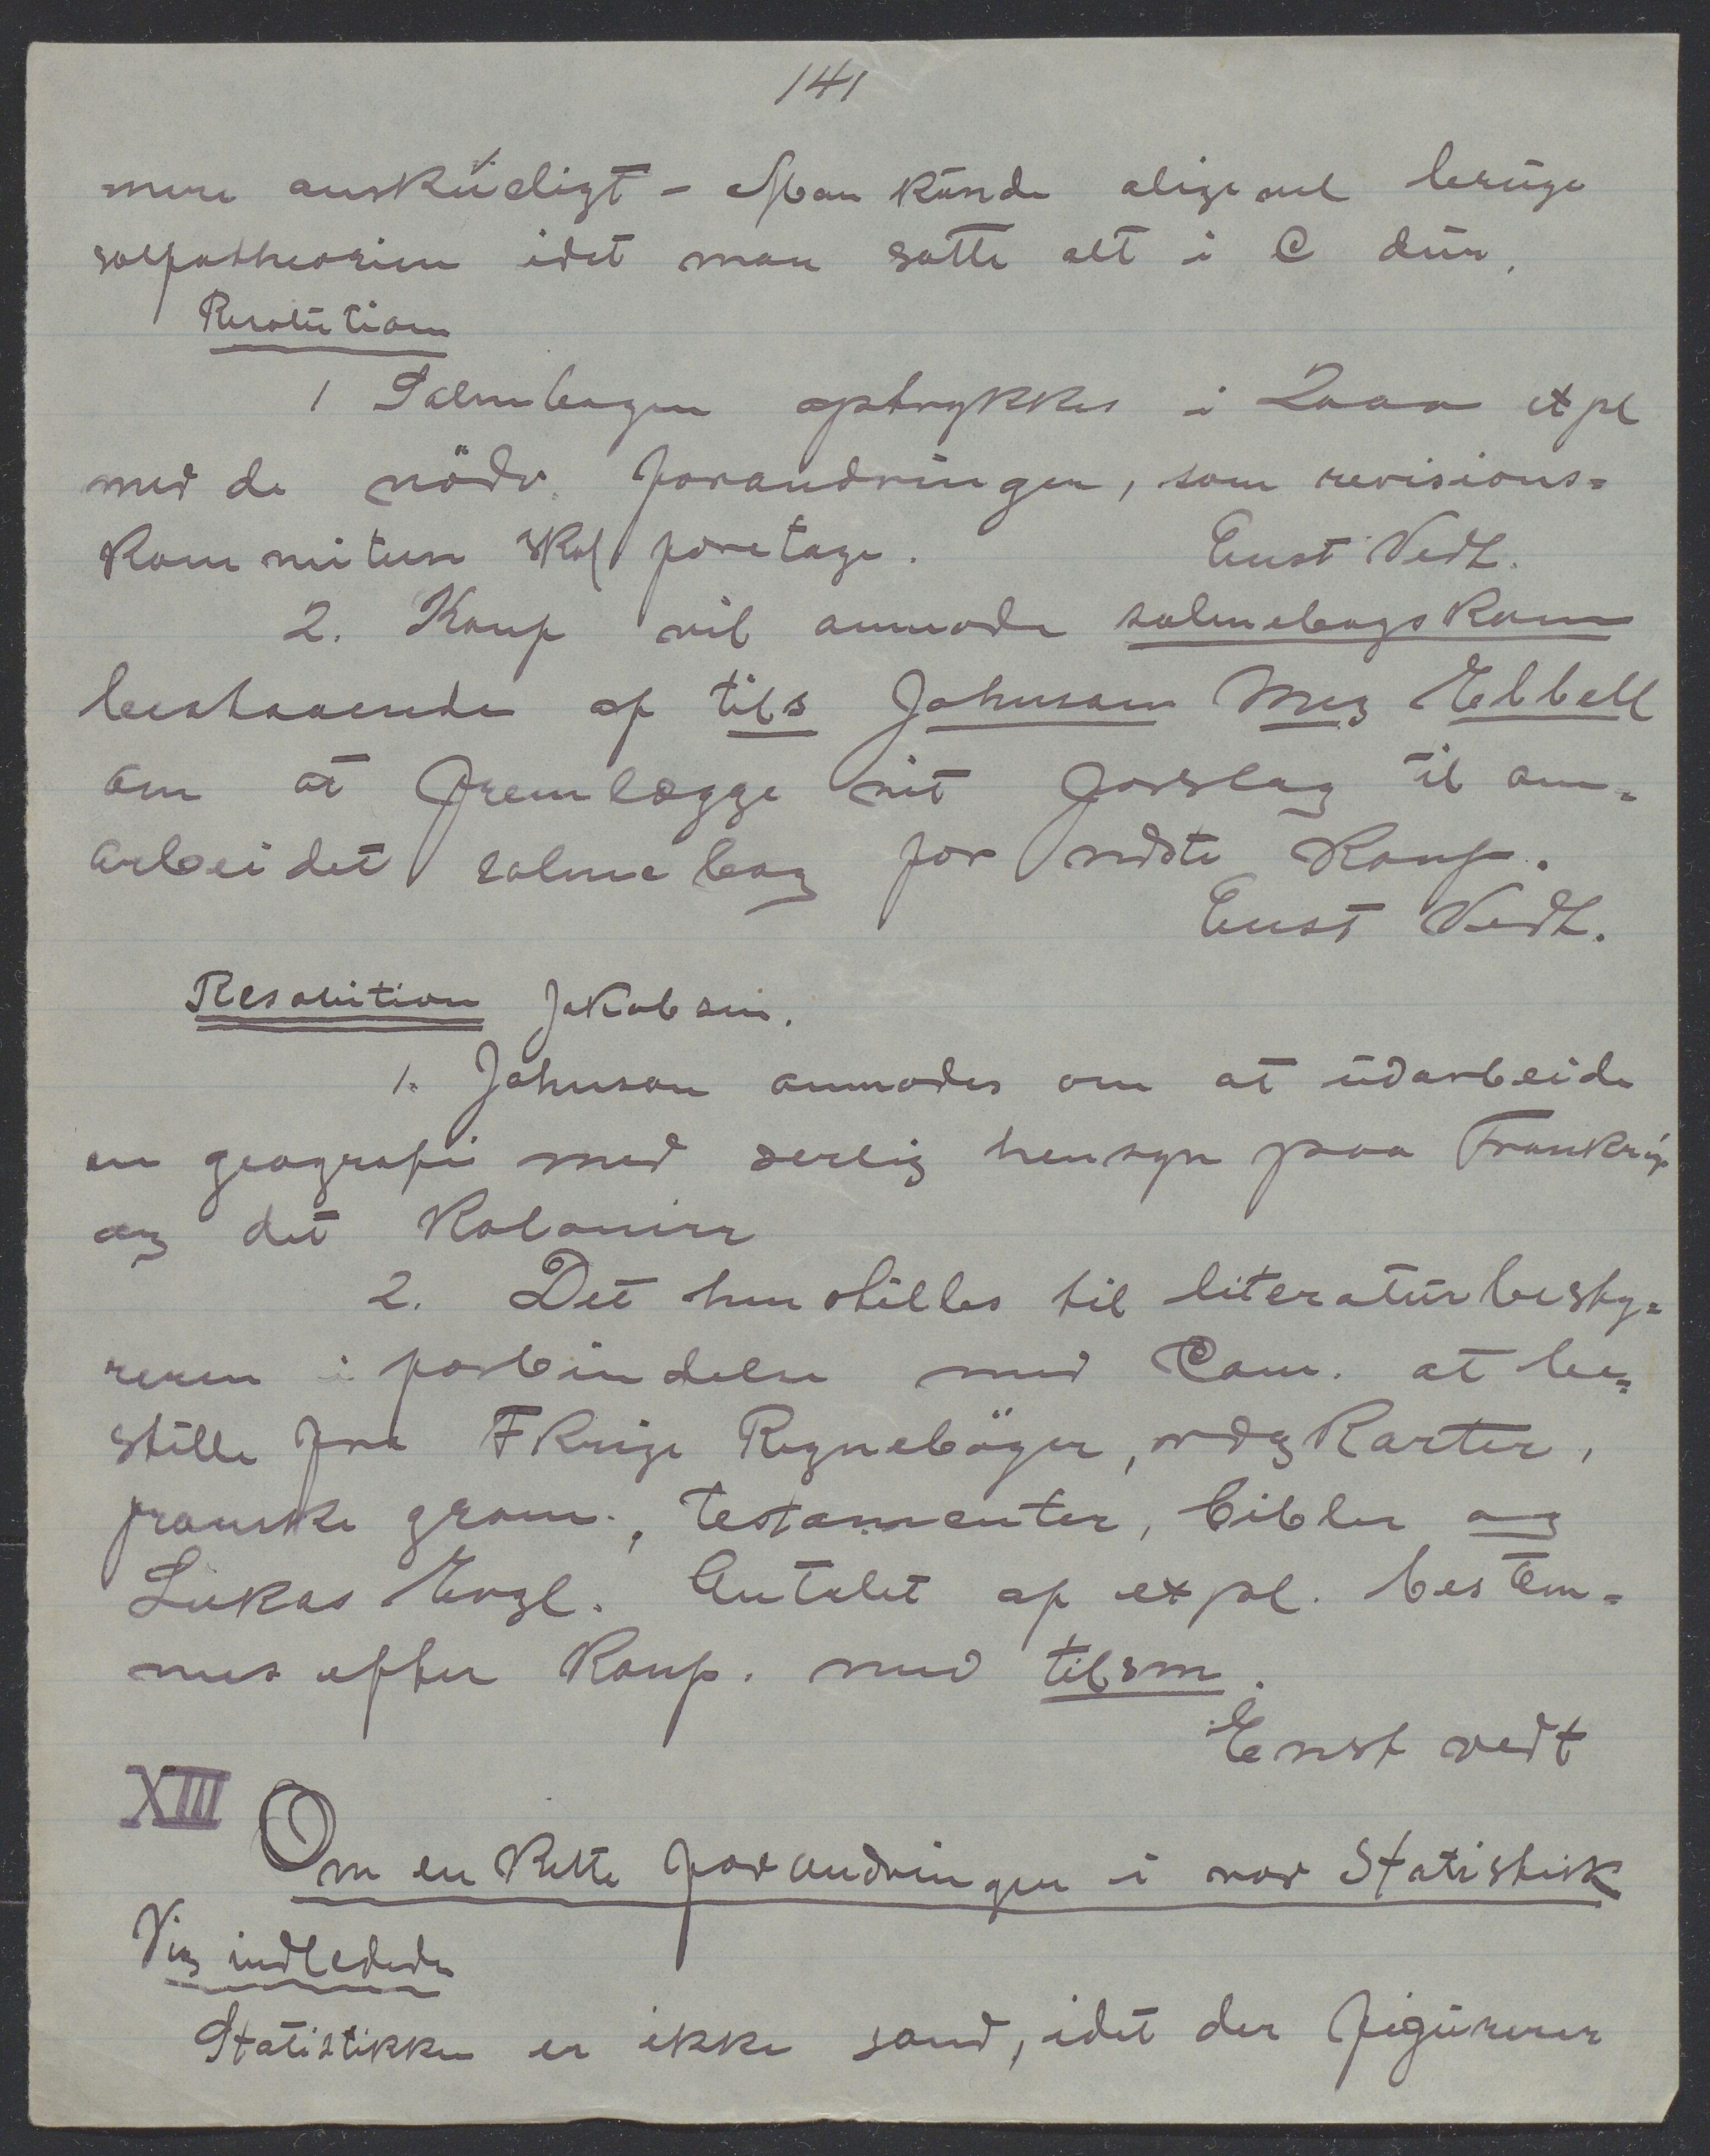 141
mere anskueligt - Man kunde aligevel bruge
solfatheorien idet man satte alt i C dur.
Resolution
1 Salmebogen optrykkes i 2000 expl
med de nödv. forandringer, som revisions=
kommiteen skal foretage. Enst Vedt.
2. Konf vil anmode salmebogskom
bestaaende af tils Johnson Meg Ebbell
om at fremlægge sit forslag til om=
arbeidet salmebog for næste Konf.
Enst Vedt.
Resolution Jakobsen.
1. Johnson anmodes om at udarbeide
en geografi med særlig hensyn paa Frankrig
og det Kolonier
2. Det henstilles til literaturbesty=
reren i forbindelse med Com. at be=
stille fra FKrige Regnebøger, vægKarter,
franske gram., Testamenter, bibler og
Lukas Evgl. Antalet af expl. bestem=
mes efter Konf. med tilsm.
Enst vedt
XIII Om enkelte forandringer i vor Statistik
Vig indledede
Statistikken er ikke sand, idet der figurerer